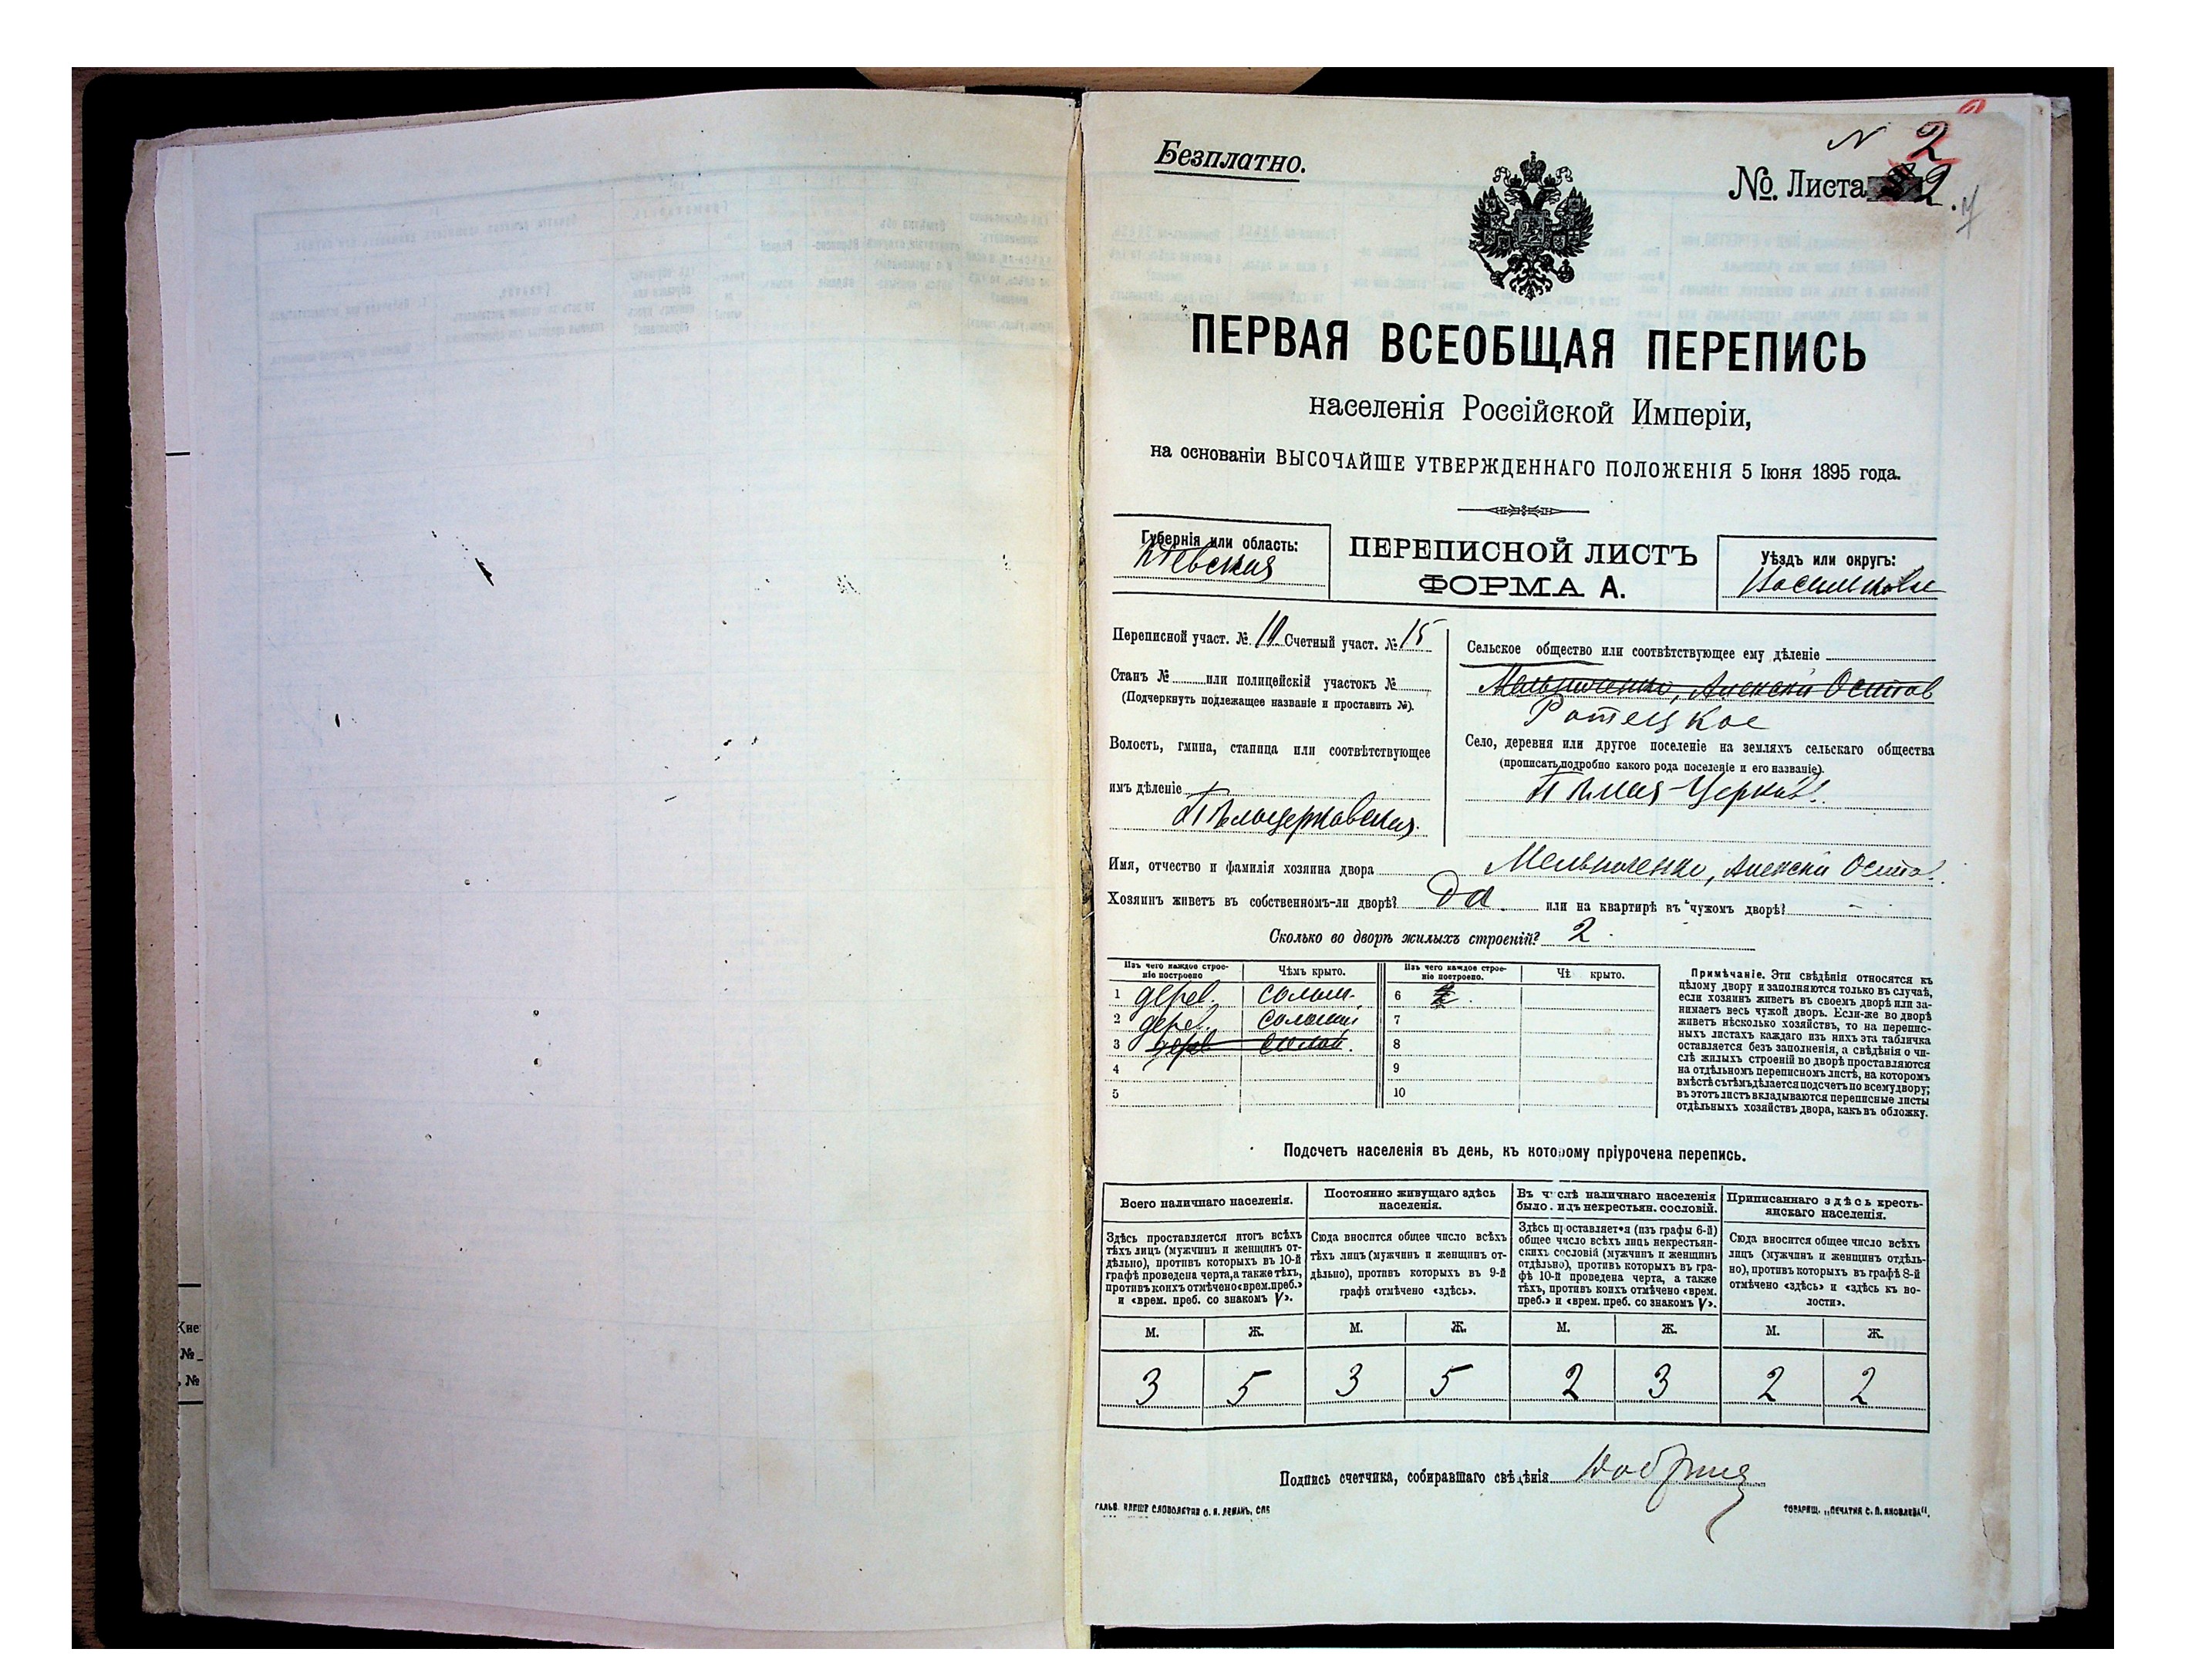 Безплатно.
N 2
№. Листа 2.
ПЕРВАЯ ВСЕОБЩАЯ ПЕРЕПИСЬ
населенія Россійской Имперіи,
на основаніи ВЫСОЧАЙШЕ УТВЕРЖДЕННАГО ПОЛОЖЕНІЯ 5 Іюня 1895 года.
Губернія или область:
Кіевская
ПЕРЕПИСНОЙ ЛИСТЪ
ФОРМА А.
Уѣздъ или округъ:
Васильковс
Переписной участ. № 10 Счетный участ. № 15
Станъ № или полицейскій участокъ №
(Подчеркнуть подлежащее названіе и проставить №).
Волость, гмина, станица или соотвѣтствующее
имъ дѣленіе
Бѣлоцерковская.
Сельское общество или соотвѣтствующее ему дѣленіе
Ротецкое
Село, деревня или другое поселеніе на земляхъ сельскаго общества
(прописать подробно какого рода поселеніе и его названіе).
Бѣлая-Церковь.
Имя, отчество и фамилія хозяина двора Мельниченко, Алексѣй Остап.
Хозяинъ живетъ въ собственномъ-ли дворѣ? Да или на квартирѣ въ чужомъ дворѣ? -
Сколько во дворѣ жилыхъ строеній? 2
Изъ чего каждое строе-
ніе построено
Чѣмъ крыто.
Изъ чего каждое строе-
ніе построено.
Чѣ крыто.
1 дерев. солом. 6
2 дерев. солом. 7
3 дерев солом. 8
4 9
5 10
Примѣчаніе. Эти свѣдѣнія относятся къ
цѣлому двору и заполняются только въ случаѣ,
если хозяинъ живетъ въ своемъ дворѣ или за-
нимаетъ весь чужой дворъ. Если-же во дворѣ
живетъ нѣсколько хозяйствъ, то на перепис-
ныхъ листахъ каждаго изъ нихъ эта табличка
оставляется безъ заполненія, а свѣдѣнія о чи-
слѣ жилыхъ строеній во дворѣ проставляются
на отдѣльномъ переписномъ листѣ, на которомъ
вмѣстѣ съ тѣмъ дѣлается подсчетъ по всему двору;
въ этотъ листъ вкладываются переписные листы
отдѣльныхъ хозяйствъ двора, какъ въ обложку.
Подсчетъ населенія въ день, къ которому пріурочена перепись.
Всего наличнаго населенія.
Здѣсь проставляется итогъ всѣхъ
тѣхъ лицъ (мужчинъ и женщинъ от-
дѣльно), противъ которыхъ въ 10-й
графѣ проведена черта, а также тѣхъ,
противъ коихъ отмѣчено «врем. преб.»
и «врем. преб. со знакомъ V».
Постоянно живущаго здѣсь
населенія.
Сюда вносится общее число всѣхъ
тѣхъ лицъ (мужчинъ и женщинъ от-
дѣльно), противъ которыхъ въ 9-й
графѣ отмѣчено «здѣсь».
Въ числѣ наличнаго населенія
было лицъ некрестьян. сословій.
Здѣсь проставляется (изъ графы 6-й)
общее число всѣхъ лицъ некрестьян-
скихъ сословій (мужчинъ и женщинъ
отдѣльно), противъ которыхъ въ гра-
фѣ 10-й проведена черта, а также
тѣхъ, противъ коихъ отмѣчено «врем.
преб.» и «врем. преб. со знакомъ V».
Приписаннаго здѣсь кресть-
янскаго населенія.
Сюда вносится общее число всѣхъ
лицъ (мужчинъ и женщинъ отдѣль-
но), противъ которыхъ въ графѣ 8-й
отмѣчено «здѣсь» и «здѣсь къ во-
лости».
М. Ж. М. Ж. М. Ж. М. Ж.
3 5 3 5 2 3 2 2
Подпись счетчика, собиравшаго свѣдѣнія
ГАЛЬВ. КЛИШЕ СЛОВОЛИТНИ О. И. ЛЕМАНЪ, СПБ
ТОВАРИЩ. „ПЕЧАТНЯ С. П. ЯКОВЛЕВА".
№
№